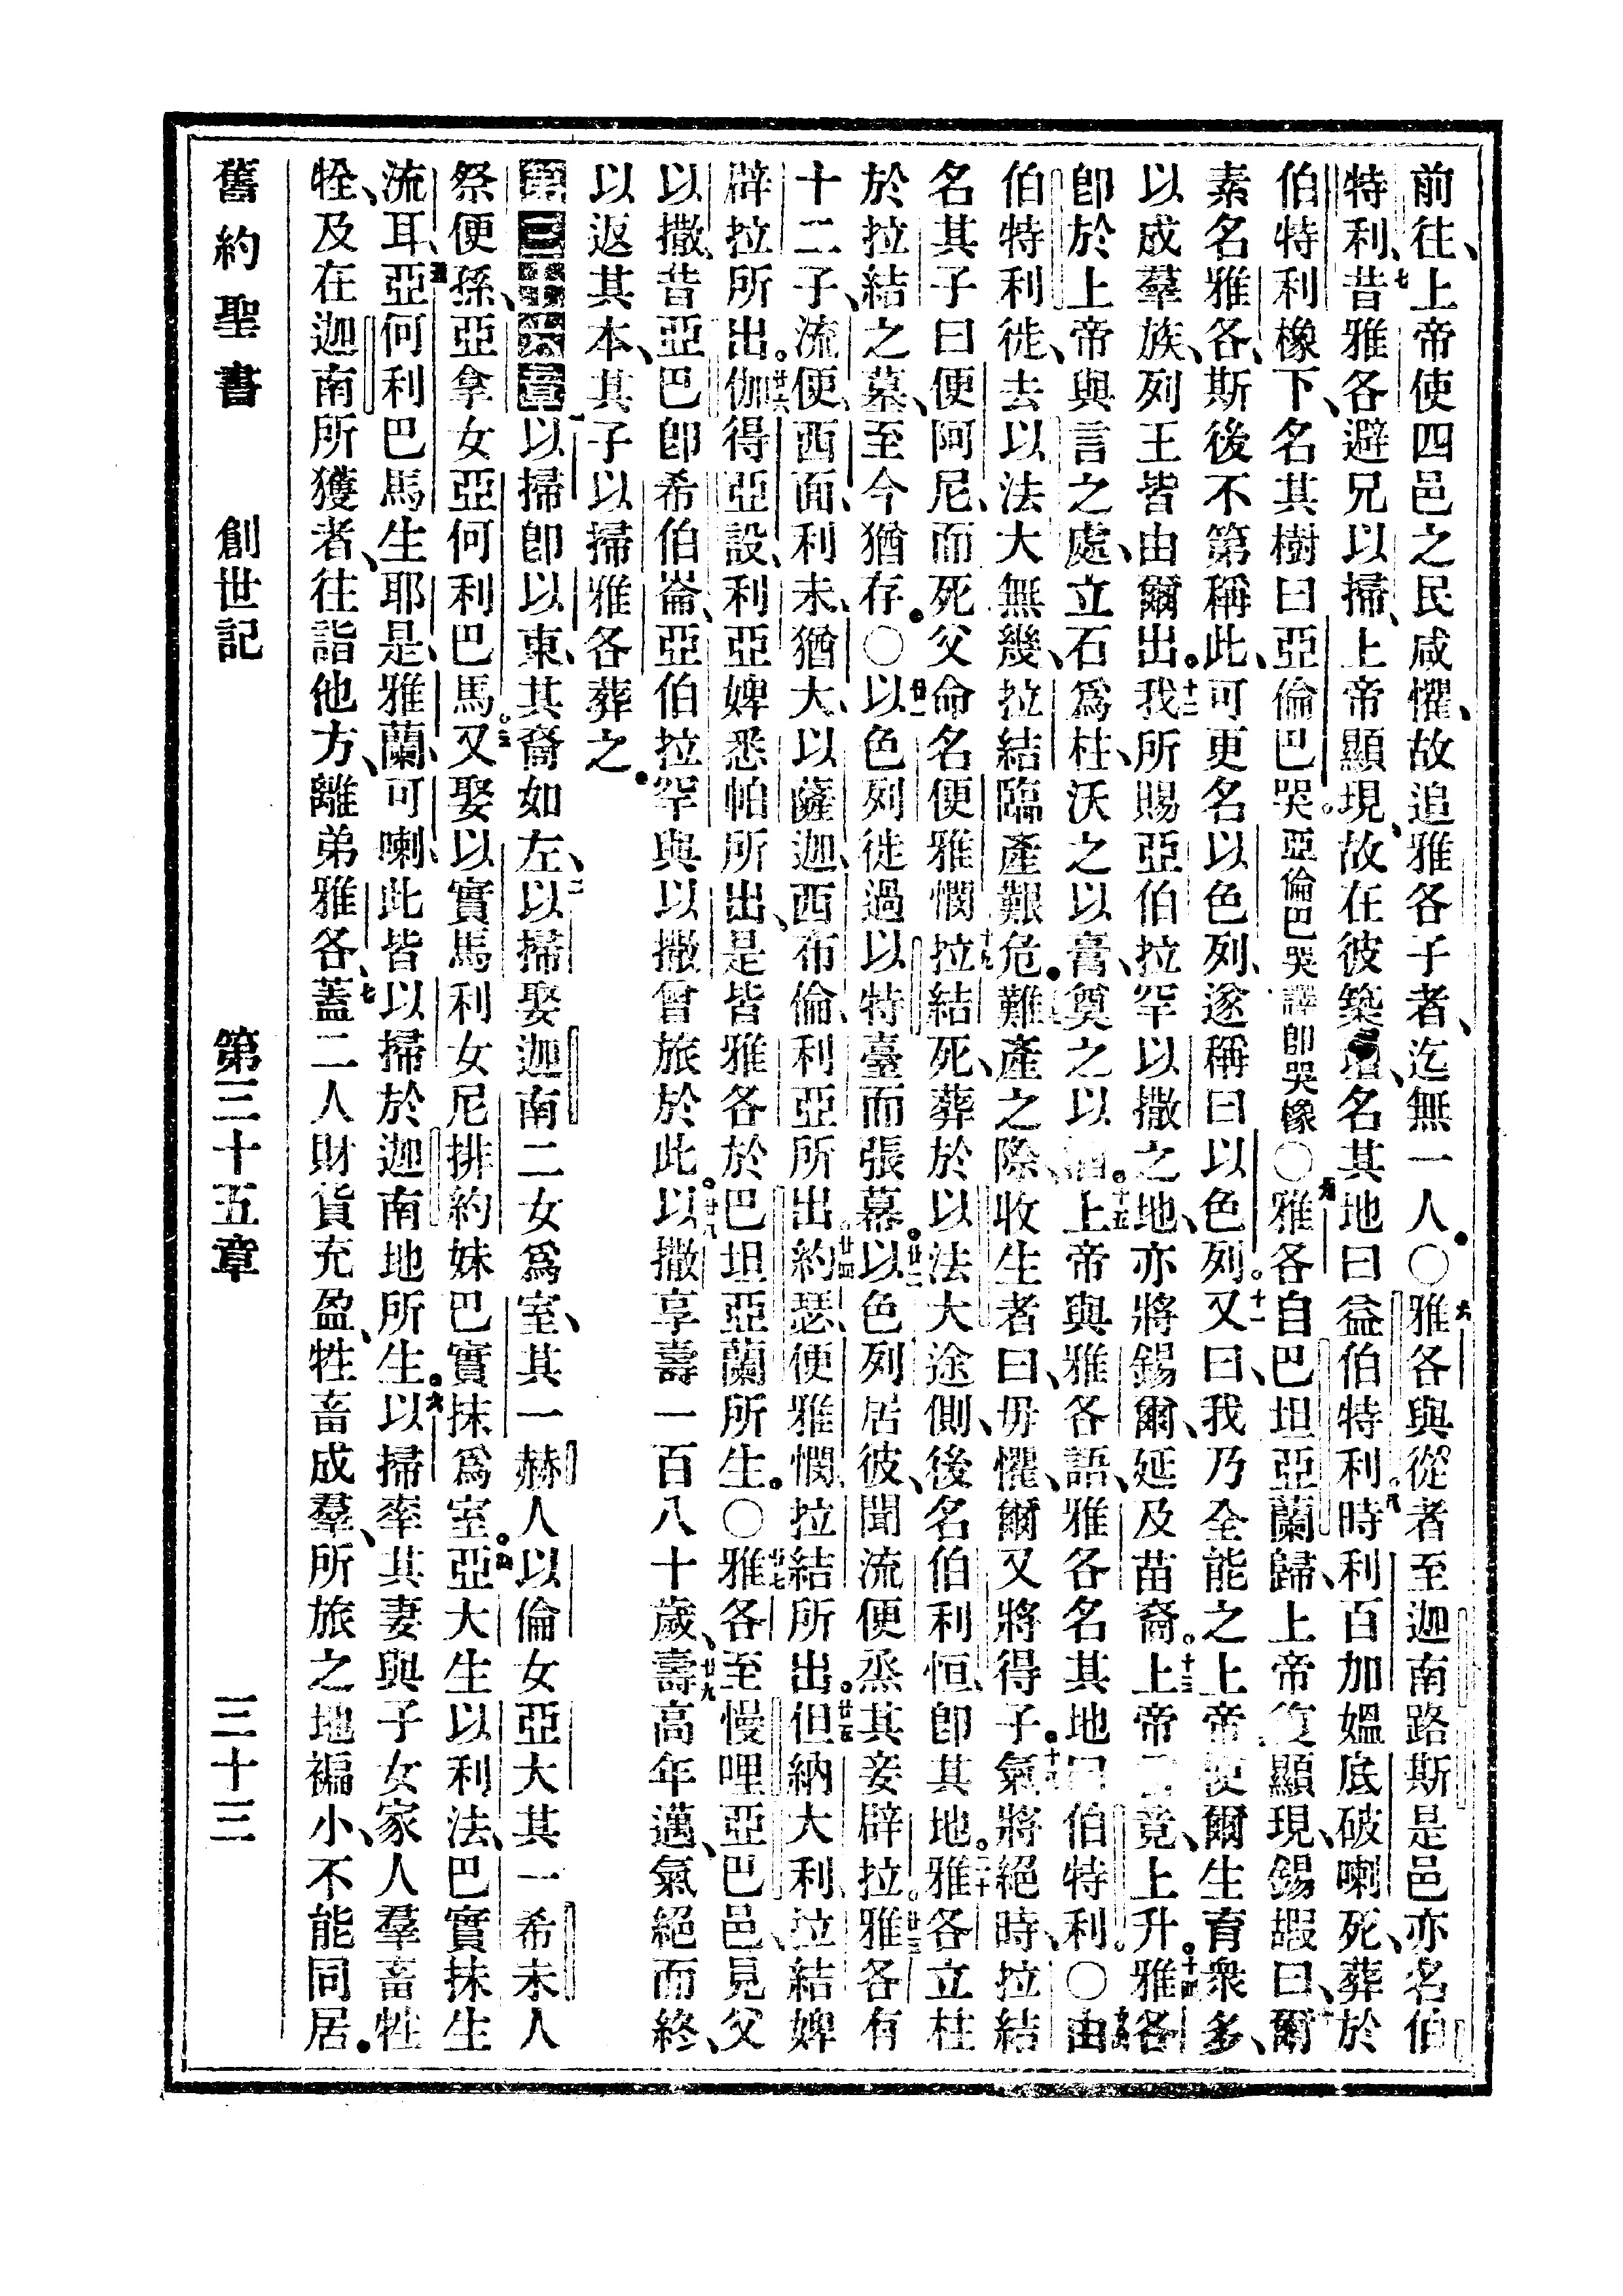 前往、上帝使四邑之民咸懼、故追雅各子者、迄無一人。〇六雅各與從者至迦南路斯是邑亦名伯
特利、七昔雅各避兄以掃、上帝顯現、故在彼築壇、名其地曰益伯特利。八時利百加媼底破喇死、葬於
伯特利橡下、名其樹曰亞倫巴哭。亞倫巴哭譯卽哭橡〇九雅各自巴坦亞蘭歸、上帝復顯現、錫嘏曰、十爾
素名雅各、斯後不第稱此、可更名以色列、遂稱曰以色列。十一又曰、我乃全能之上帝使爾生育衆多、
以成羣族、列王皆由爾出。十二我所賜亞伯拉罕以撒之地、亦將錫爾、延及苗裔。十三上帝言竟、上升。十四雅各
卽於上帝與言之處、立石爲柱、沃之以膏、奠之以酒。十五上帝與雅各語、雅各名其地曰伯特利。〇十六由
伯特利徙、去以法大無幾、拉結臨產艱危。十七難產之際、收生者曰、毋懼、爾又將得子。十八氣將絕時、拉結
名其子曰便阿尼、而死父命名便雅憫十九拉結死、葬於以法大途側、後名伯利恒、卽其地。二十雅各立柱
於拉結之墓、至今猶存。〇廿一以色列徙過以特臺而張幕。廿二以色列居彼、聞流便烝其妾辟拉。廿三雅各有
十二子、流便、西面、利未、猶大、以薩迦、西布倫、利亞所出。廿四約瑟、便雅憫、拉結所出。廿五但、納大利、拉結婢
辟拉所出。廿六伽得、亞設、利亞婢悉帕所出、是皆雅各於巴坦亞蘭所生。〇廿七雅各至幔哩亞巴邑、見父
以撒、昔亞巴卽希伯崙、亞伯拉罕與以撒曾旅於此。廿八以撒享壽一百八十歲、廿九壽高年邁、氣絕而終、
以返其本、其子以掃雅各葬之。
第三十六章 一以掃卽以東、其裔如左、二以掃娶迦南二女爲室、其一赫人以倫女亞大其一希未人
祭便孫、亞拿女亞何利巴馬。三又娶以實馬利女尼排約妹巴實抹爲室。四亞大生以利法、巴實抹生
流耳、五亞何利巴馬生耶是、雅蘭、可喇、此皆以掃於迦南地所生。六以掃率其妻與子女家人羣畜牲
牷、及在迦南所獲者、往詣他方、離弟雅各、七蓋二人財貨充盈、牲畜成羣、所旅之地褊小、不能同居。
舊約聖書　創世記　第三十五章　三十三